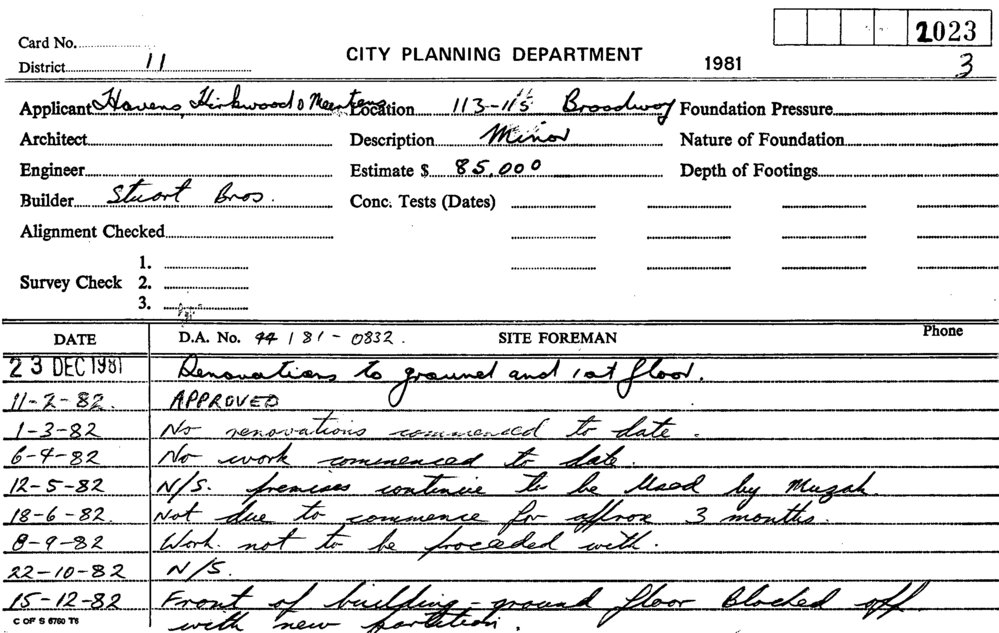 2023
Card No.
CITY PLANNING DEPARTMENT 1981 3
District 11
Applicant Havens, Kirkwood & Location 113-115 Broadway Foundation Pressure
Architect Description Minor Nature of Foundation
Engineer Estimate $ 85,000 Depth of Footings
Builder Stuart Bros. Conc. Tests (Dates)
Alignment Checked
1.
Survey Check 2.
3.
DATE D.A. No. 44/81-0832. SITE FOREMAN Phone
23 DEC 1981 Renovations to ground and 1st floor.
11-2-82. APPROVED
1-3-82 No renovations commenced to date.
6-4-82 No work commenced to date.
12-5-82 N/S. premises continue to be used by Muzak.
18-6-82. Not due to commence for approx 3 months.
8-9-82 Work not to be proceeded with.
22-10-82 N/S.
15-12-82 Front of building - ground floor Blocked off
C OF S 6760 T6 with new partition.